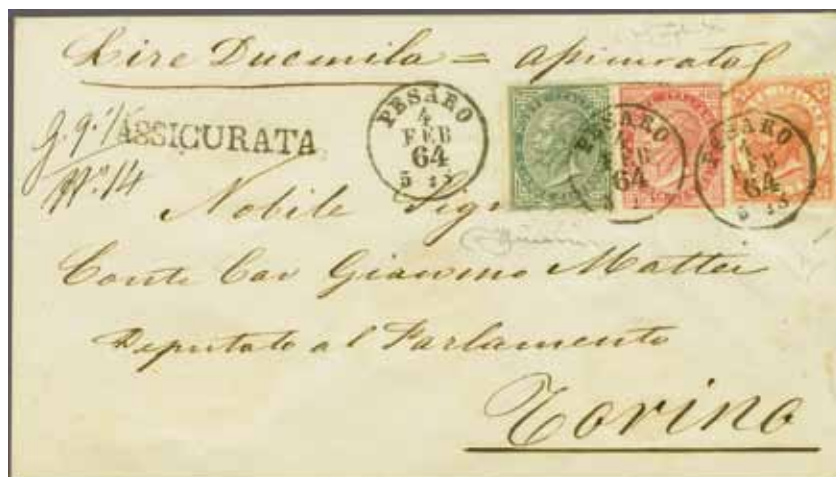 Lire Duemila = Assicurata
ASSICURATA
Nº 14
PESARO
4
FEB
64
PESARO
4
FEB
64
PESARO
4
FEB
64
Nobile Sig
Conte Cav Giacomo Mattei
Deputato al Parlamento
Torino